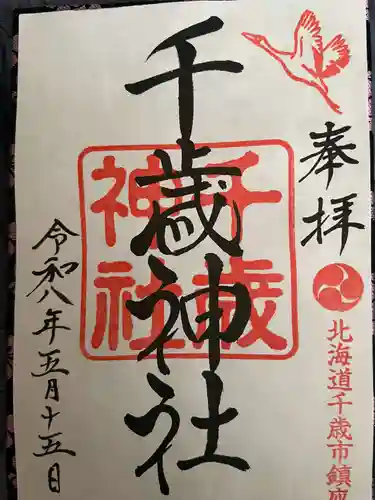 奉拝
北海道千歳市鎮座
千歳神社
千歳
神社
令和八年五月十五日